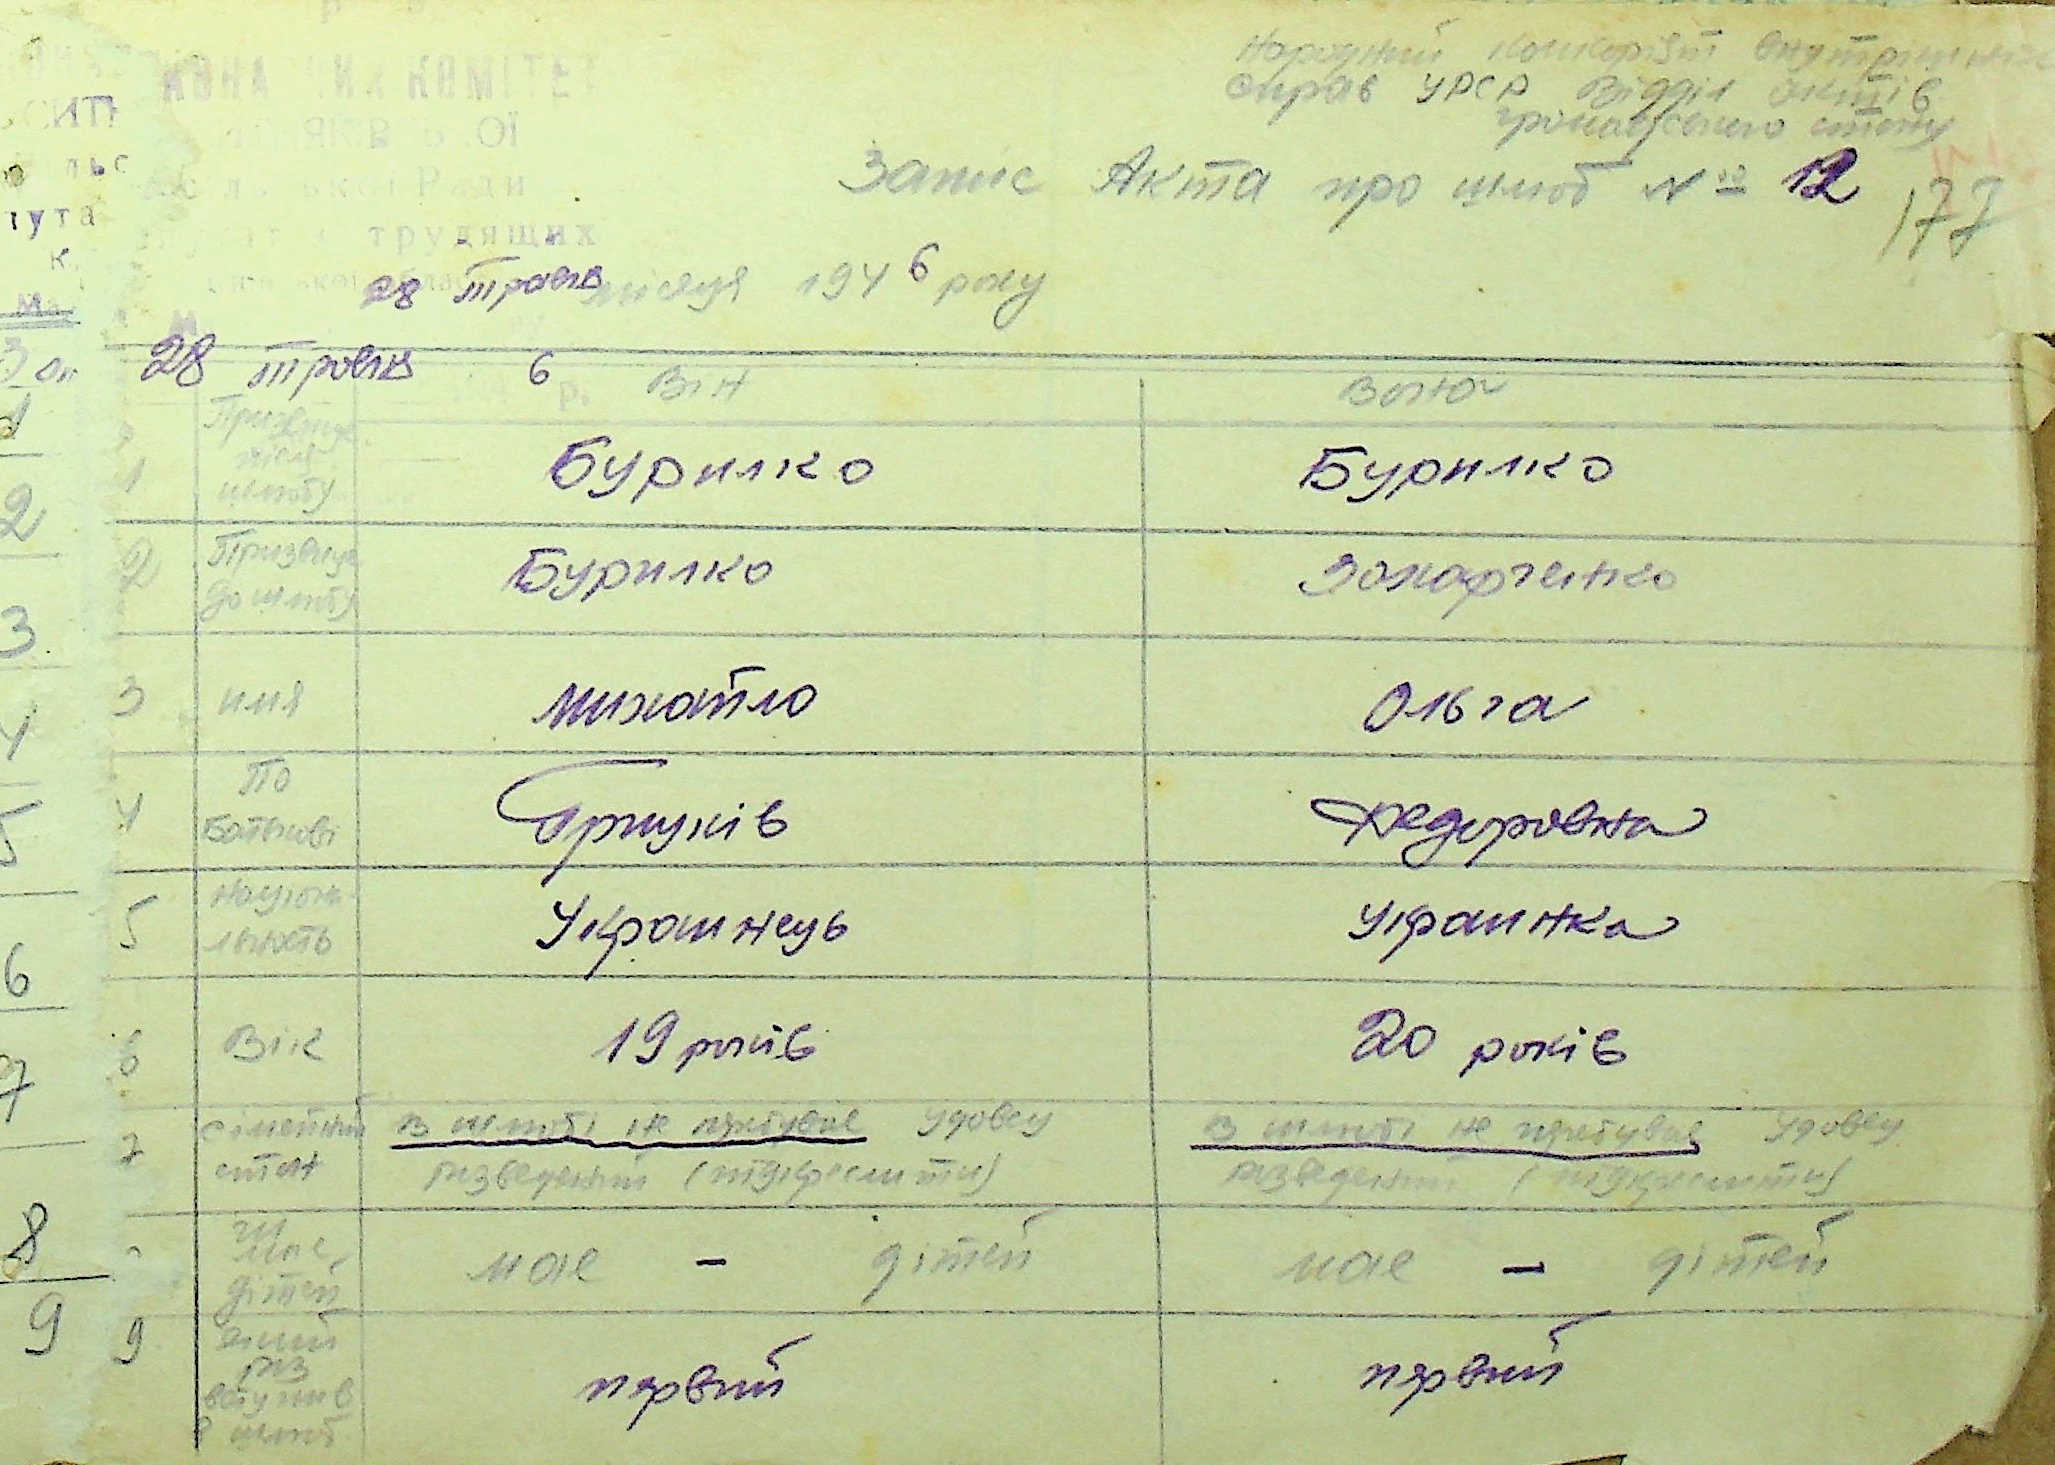 Народний комісаріят внутрішніх
справ УРСР Відділ актів
громадського стану
КОМІТЕТ
Ради
трудящих
Запис Акта про шлюб № 12
177
28 травня місяця 1946 року
28 травня 6 р.
Він Вона
1 Призвище після шлюбу Бурилко Бурилко
2 Призвище до шлюбу Бурилко Захарченко
3 имя михайло Ольга
4 По Батькові Федоровна
5 націона-
льність Українець Украинка
6 Вік 19 років 20 років
7 сімейний стан В шлюбі не пребував Удовец В шлюбі не пребував Удовец
розведений (підкреслити) розведений (підкреслити)
має дітей має – дітей має – дітей
9 який раз вступив в шлюб первий первий
2
3
4
5
6
7
8
9